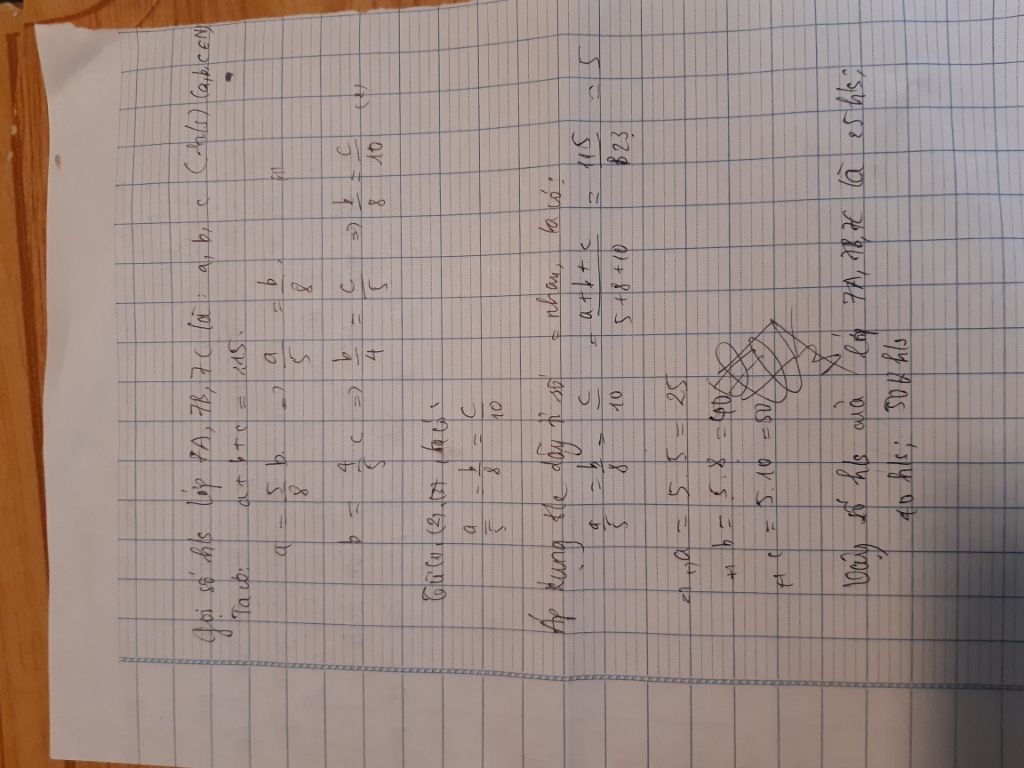 Gọi số hls lớp 7A, 7B, 7C là: a, b, c (hls) (a,b,c ∈ N)
Ta có: a + b + c = 115.
a = 5/8 b => a/5 = b/8 (1)
b = 4/5 c => b/4 = c/5 => b/8 = c/10
a/5 = b/8 = c/10
Áp dụng dãy số = nhau, ta có:
a/5 = b/8 = c/10 = a+b+c / 5+8+10 = 115/23 = 5
=> +) a = 5.5 = 25
+) b = 5.8 = 40
+) c = 5.10 = 50
Vậy số hls của lớp 7A, 7B, 7C là 25 hls;
40 hls; 50 hls